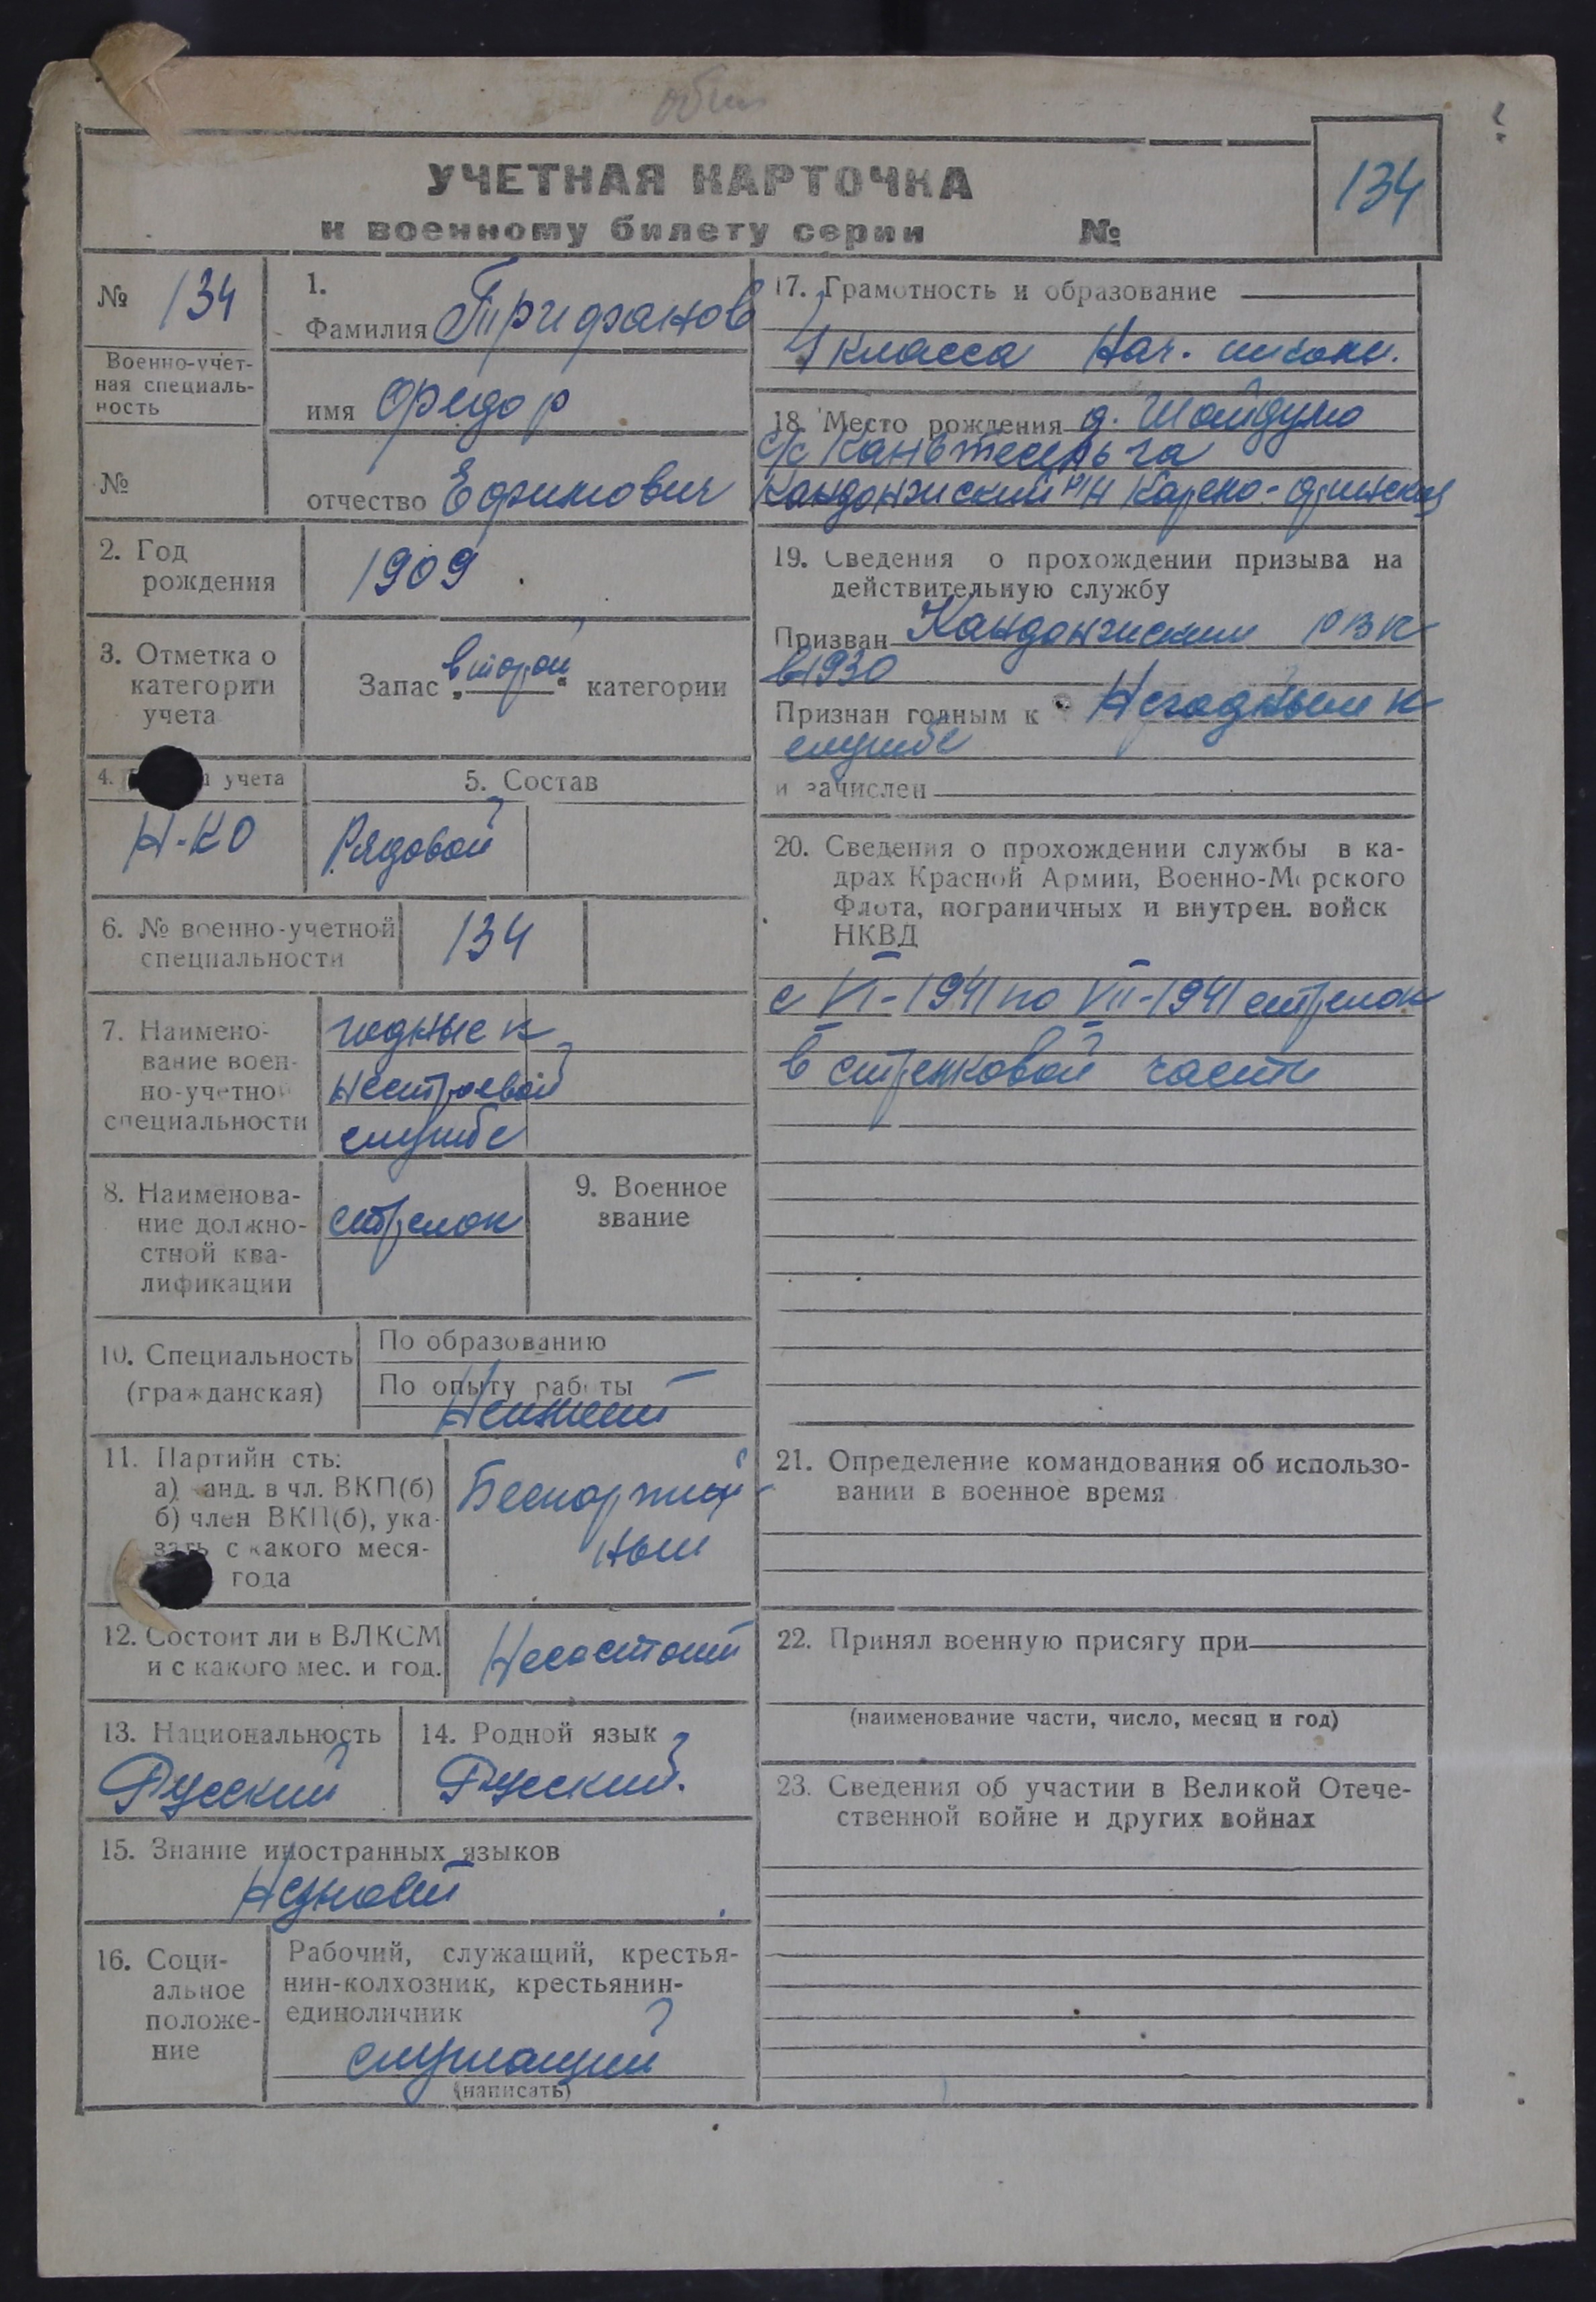 УЧЕТНАЯ КАРТОЧКА
134
к военному билету серии №
№ 134
Военно-учет-
ная специаль-
ность
№
1.
Фамилия Трифанов
имя Федор
отчество Ефимович
2. Год
рождения
1909
3. Отметка о
категории
учета
Запас „второй“ категории
4. учета
Н-КО
5. Состав
Рядовой
6. № военно-учетной
специальности
134
7. Наимено-
вание воен-
но-учетно
специальности
годные к
нестроевой
службе
8. Наименова-
ние должно-
стной ква-
лификации
стрелок
9. Военное
звание
10. Специальность
(гражданская)
По образованию
По опыту раб ты
Неимеет
11. Партийн сть:
а) анд. в чл. ВКП(б)
б) член ВКП(б), ука-
зать с какого меся-
года
Беспартий-
ный
12. Состоит ли в ВЛКСМ
и с какого мес. и год.
Несостоит
13. Национальность
Русский
14. Родной язык
Русский.
15. Знание иностранных языков
Незнает
16. Соци-
альное
положе-
ние
Рабочий, служащий, крестья-
нин-колхозник, крестьянин-
единоличник
служащий
(написать)
17. Грамотность и образование
4 класса Нач. школы.
18. Место рождения д.
с/с
р/н Карело-Финской
19. Сведения о прохождении призыва на
действительную службу
Призван РВК
в 1930
Признан годным к Негодным к
службе
и зачислен
20. Сведения о прохождении службы в ка-
драх Красной Армии, Военно-М рского
Флота, пограничных и внутрен. войск
НКВД
с VI-1941 по VII-1941 стрелок
в стрелковой части
21. Определение командования об использо-
вании в военное время
22. Принял военную присягу при
(наименование части, число, месяц и год)
23. Сведения об участии в Великой Отече-
ственной войне и других войнах